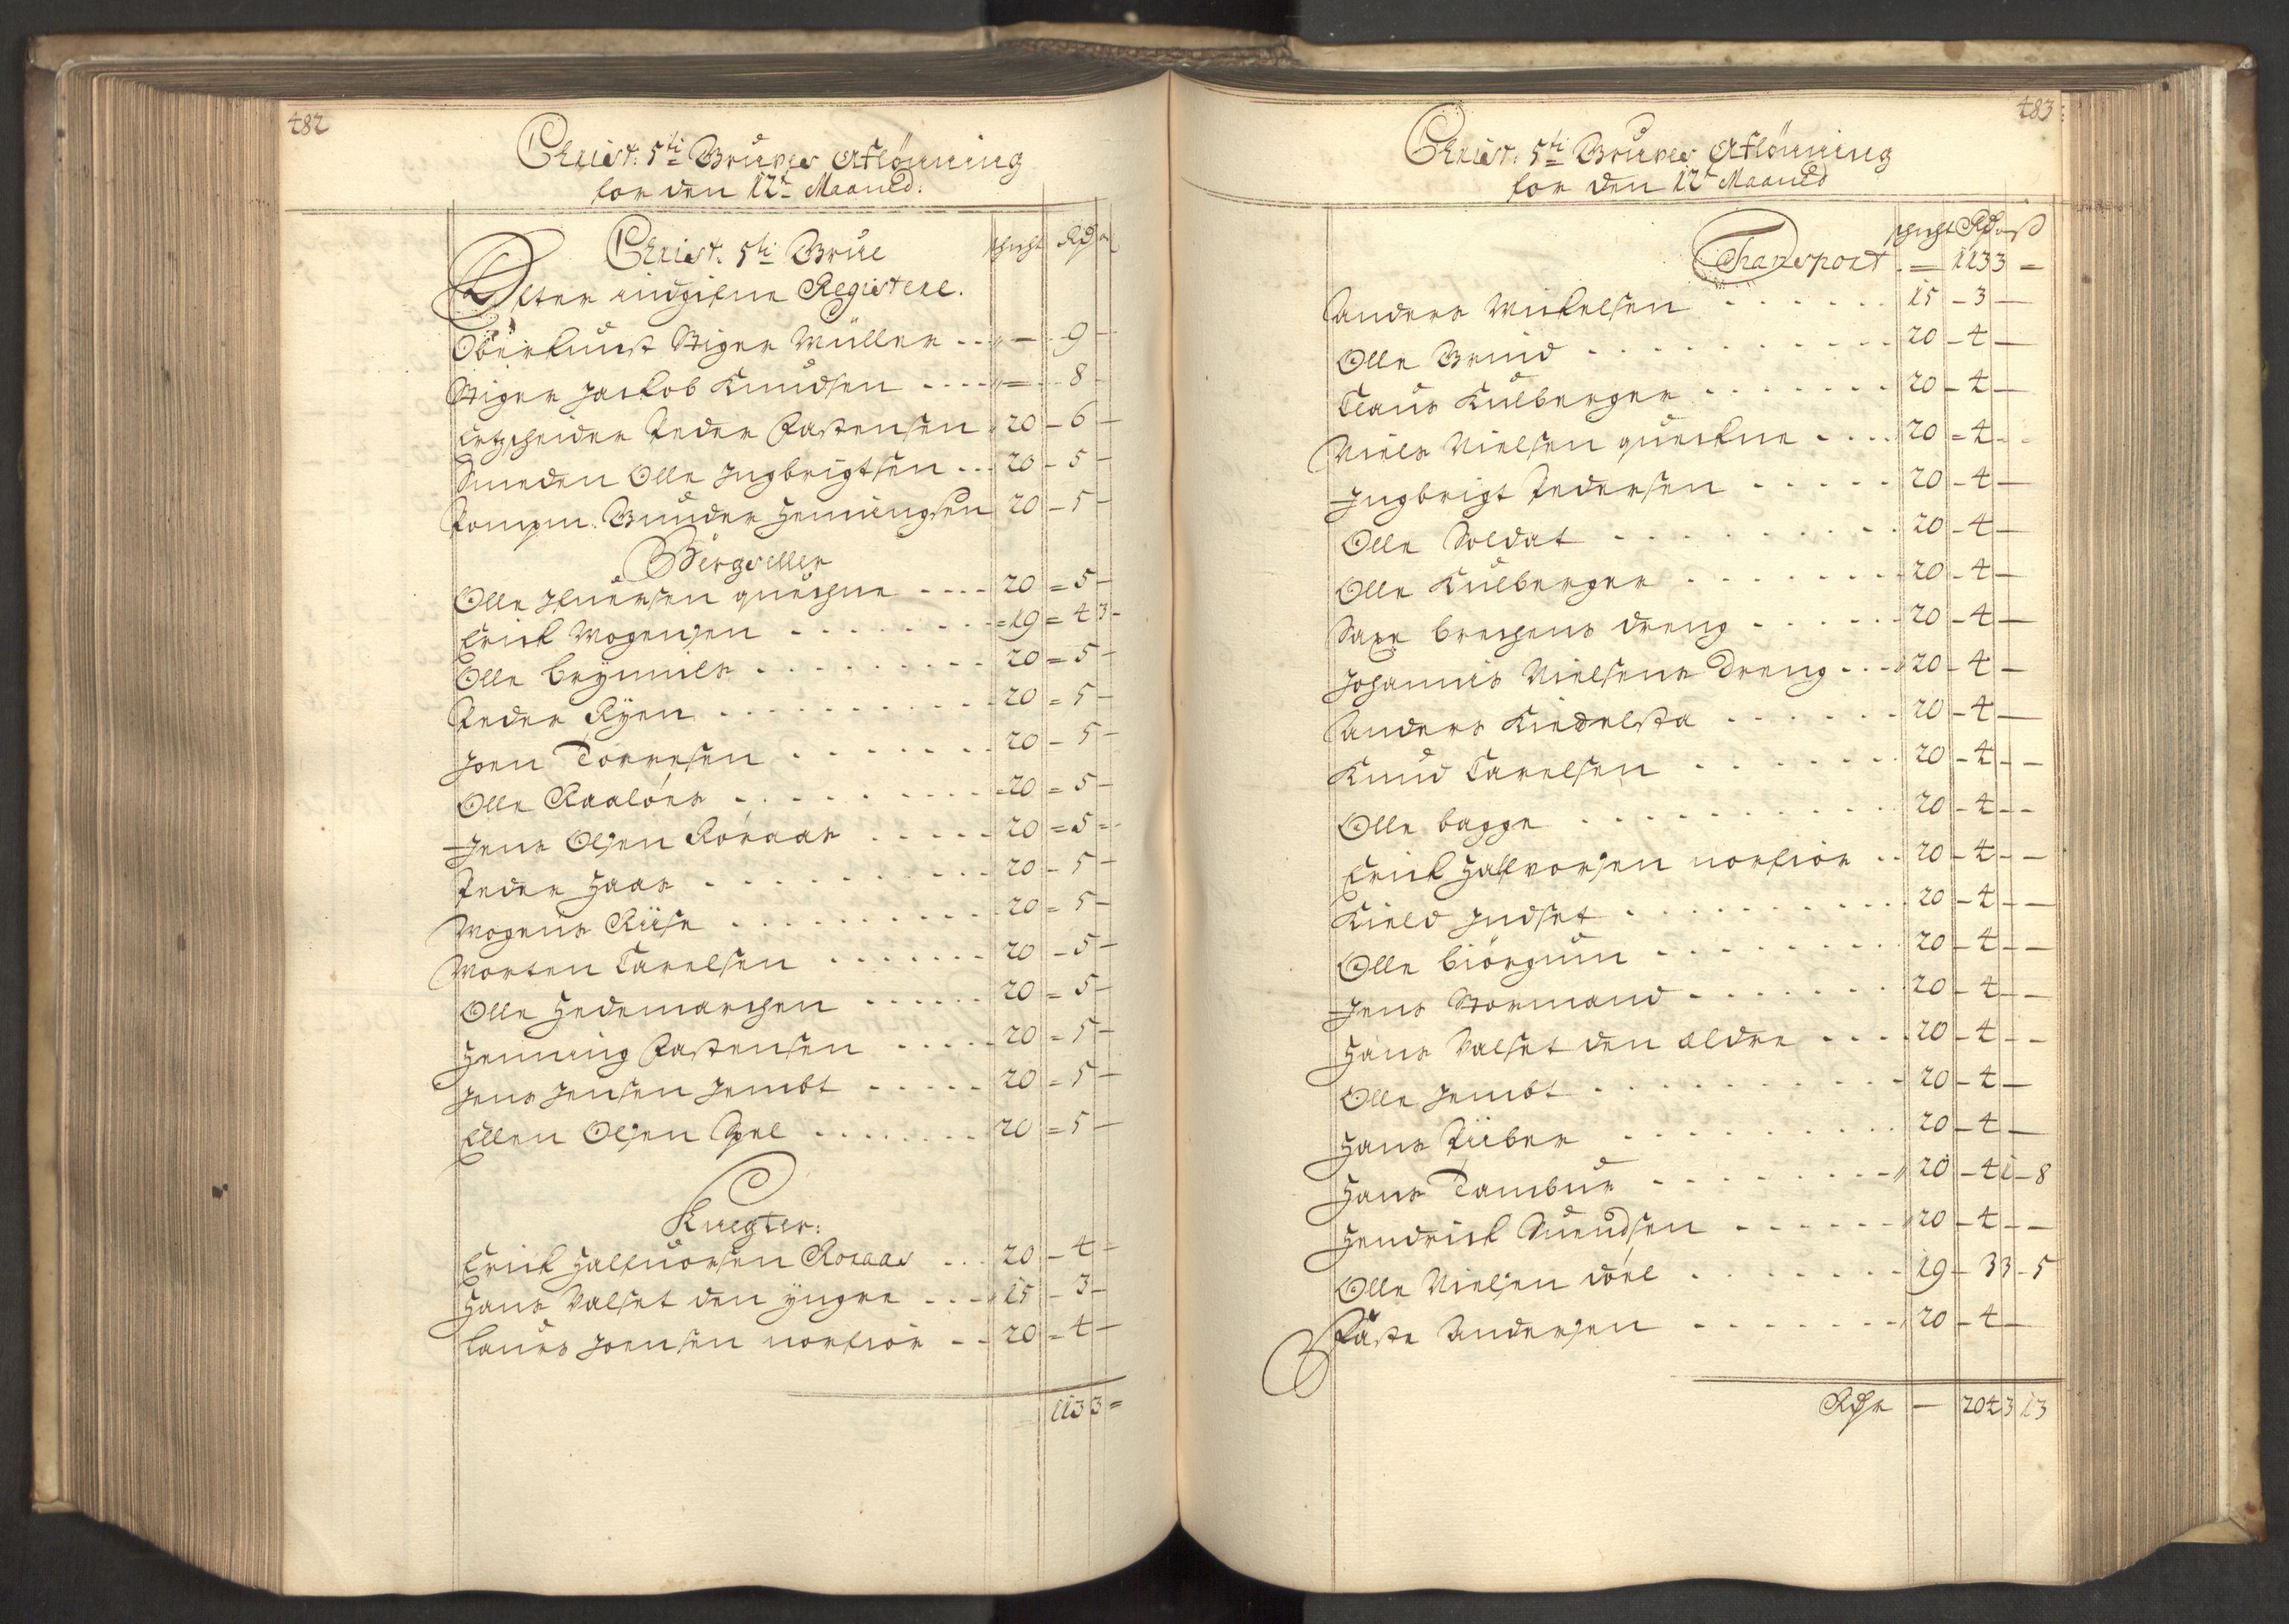 482
Christ: 5ti Gruves Aflönning
for den 12te Maaned:
Christ: 5ti Grue schicht Rdr
Efter indgifne Registere.
Oberkunst Stiger Müller . . . — 9 —
Stiger Jackob Knudsen . . . . = 8 —
Ertzscheider Peder Fastensen 20 — 6 —
Smeden Olle Ingbrigtsen . . . 20 — 5 —
Pompm: Gunder Henningsen 20 — 5 —
Bergseller
Olle Ifuersen quechne . . . . 20 = 5 —
Erick Mogensen . . . . . . . = 19 = 4 3 —
Olle Brynnils . . . . . . . . 20 = 5 —
Peder Ryen . . . . . . . . . 20 = 5 —
Joen Torresen . . . . . . . 20 — 5 —
Olle Raaloes . . . . . . . . 20 = 5 —
Jens Olsen Röraas . . . . . 20 = 5 =
Peder Haas . . . . . . . . . 20 — 5 —
Mogens Riise . . . . . . . . 20 = 5 —
Morten Carelsen . . . . . . . 20 — 5 —
Olle Hedemarchen . . . . . . 20 = 5 —
Henning Fastensen . . . . . 20 = 5 —
Jens Jensen Jembt . . . . . 20 = 5 —
Ellen Olsen Spel . . . . . . . 20 = 5 —
Knegter:
Erick Halfuorsen Roraas . . . 20 — 4 —
Hans Valset den yngre . . . 15 — 3 —
Laurs Joensen norfior . . 20 = 4 —
113 3 =
483
Christ: 5ti Gruves Aflönning
for den 12te Maaned
schicht Rdr ß
Transport . = 113 3 =
Anders Mickelsen . . . . . . 15 — 3 —
Olle Brud . . . . . . . . . . 20 — 4 —
Claus Kulberger . . . . . . . 20 — 4 —
Niels Nielsen quechne . . . . 20 = 4 —
Ingbrigt Pedersen . . . . . 20 — 4 —
Olle Soldat . . . . . . . . . 20 — 4 —
Olle Kulberger . . . . . . . 20 — 4 —
Saxe brechens dreng . . . . . 20 — 4 —
Johannis Nielsens Dreng . . . 20 — 4 —
Anders Kiedelsta . . . . . . 20 — 4 —
Knud Carelsen . . . . . . . 20 — 4 — —
Olle bagge . . . . . . . . . . 20 — 4 — —
Erick Halfvorsen norfior . . 20 — 4 — —
Kield Indset . . . . . . . . . . 20 — 4 — —
Olle biörgum . . . . . . . . . 20 — 4 — —
Jens Stormand . . . . . . . . 20 — 4 — —
Hans Valset den Eldre . . . . 20 — 4 — —
Olle Jembt . . . . . . . . . . 20 — 4 —
Hans Piiber . . . . . . . . . 20 — 4 —
Hans Tambur . . . . . . . . 20 — 4 1 — 8
Hendrick Suendsen . . . . . . 20 — 4 — —
Olle Nielsen doel . . . . . . . 19 — 3 3 — 5
Faste Andersen . . . . . . . 20 — 4 —
Rdr — 204 3 13